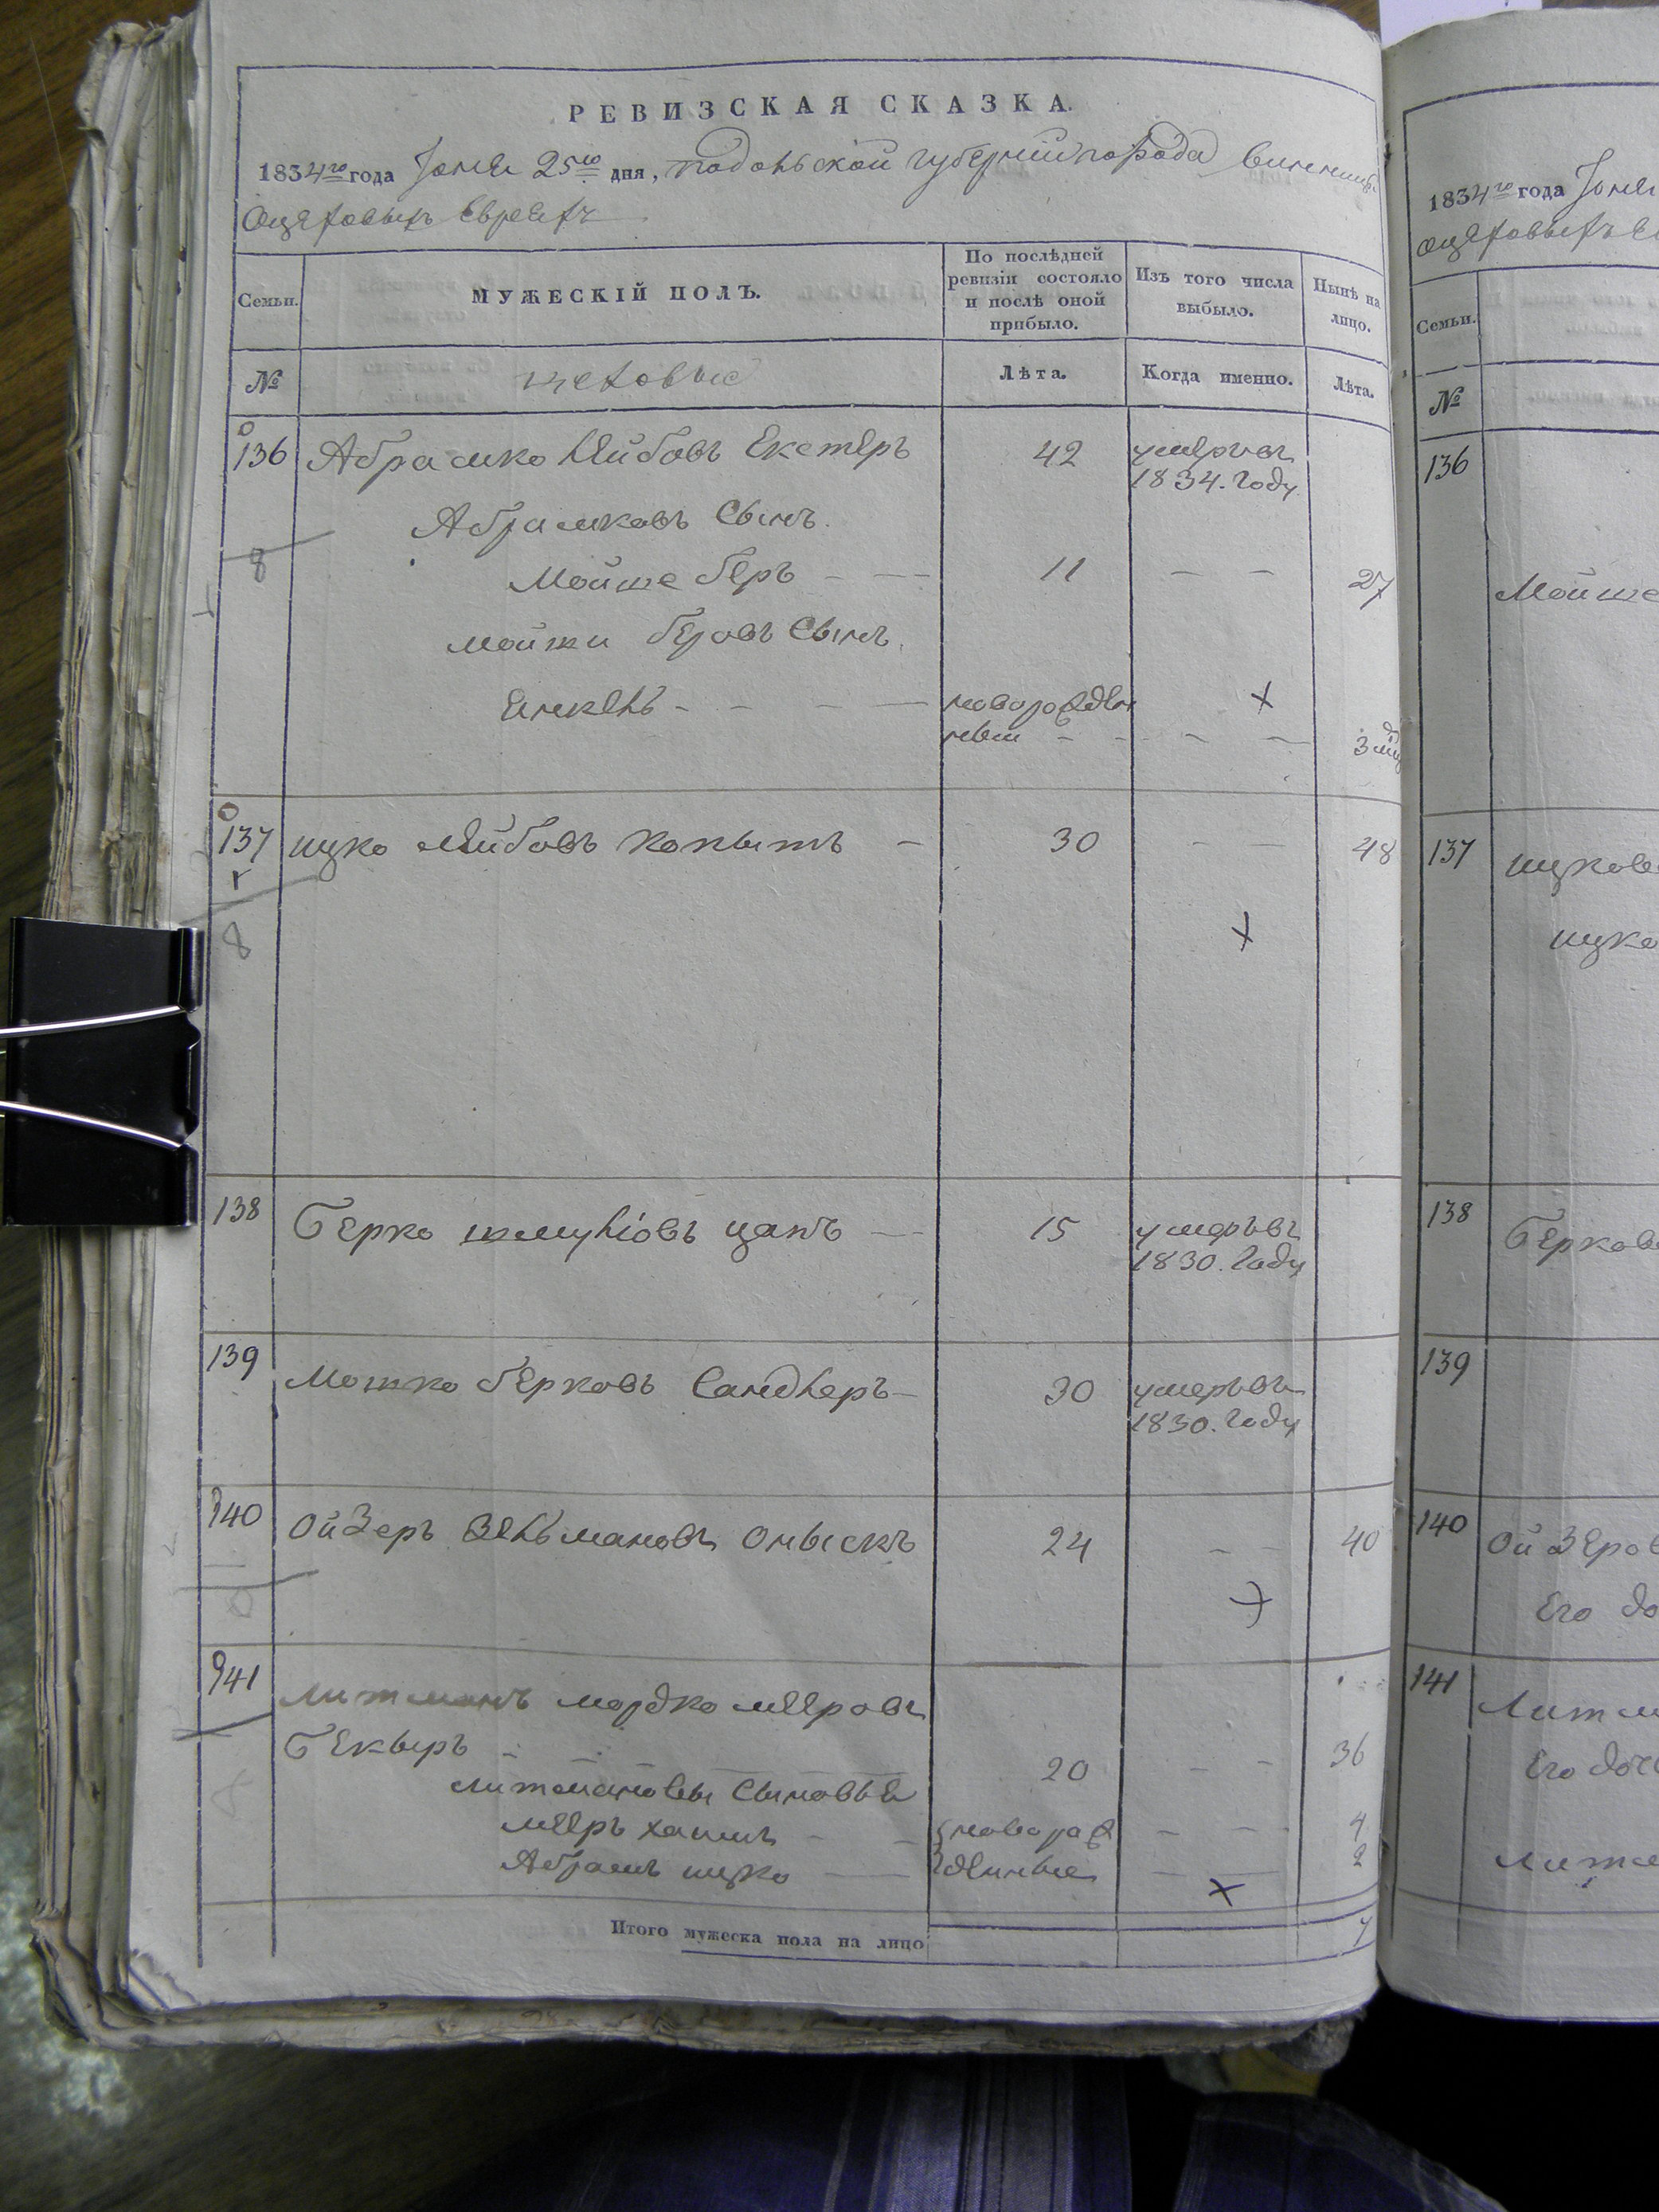 РЕВИЗСКАЯ СКАЗКА.
1834го года Іюня 25го дня, подольской губерніи города
Семьи. МУЖЕСКІЙ ПОЛЪ. По послѣдней ревизіи состояло и послѣ оной прибыло. Изъ того числа выбыло. Нынѣ на лицо.
№ Лѣта. Когда именно. Лѣта.
136 Абрамко Лейбовъ Екстеръ 42 умеръ въ
1834. Году
Абрамковъ Сынъ.
8 Мойше беръ 11 — — 27
мойши беровъ Сынъ.
новорожден
ный — — 3
137 ицко Лейбовъ копытъ — 30 — — 48
8
138 Берко шмулiовъ цапъ — 15 умеръ въ
1830. Году
139 Мошко берковъ Сандлеръ — 30 умеръ въ
1830. Году
140 Ойзеръ Зельмановъ 24 — — 40
141 Литманъ мордко мееровъ
20 — — 36
литмановы Сыновья
мееръ хаимъ — новорож — — 4
Абрамъ ицко — денные — 2
Итого мужеска пола на лицо 7
1834го года Іюня
Семьи.
№
136
Мойше
137
ицко
138
139
140
Его до
141 Литм
Его доч